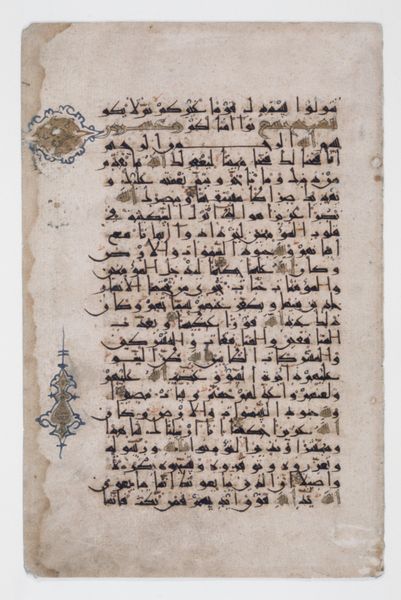 تتولوا يستبدل قوما غيركم ثم لا يكو
نوا امثالكم
بسم الله الرحمن الرحيم
انا فتحنا لك فتحا مبينا ليغفر لك الله ما تقدم
من ذنبك وما تاخر ويتم نعمته عليك و
يهديك صراطا مستقيما وينصرك الله
نصرا عزيزا هو الذي انزل السكينة في
قلوب المومنين ليزدادوا ايمانا مع
ايمانهم ولله جنود السموات والارض
وكان الله عليما حكيما ليدخل المومنين
والمومنات جنات تجري من تحتها الانهار
خلدين فيها ويكفر عنهم سياتهم وكان
ذلك عند الله فوزا عظيما ويعذب
المنفقين والمنفقات والمشركين
والمشركات الظانين بالله ظن السو
عليهم دائرة السو وغضب الله عليهم
ولعنهم واعد لهم جهنم وسات مصيرا
ولله جنود السموات والارض وكان
الله عزيزا حكيما انا ارسلناك شاهدا
ومبشرا ونذيرا لتومنوا بالله ورسوله
وتعزروه وتوقروه وتسبحوه بكرة
واصيلا ان الذين يبايعونك انما يبايعون
الله يد الله فوق ايديهم فمن نكث فانما